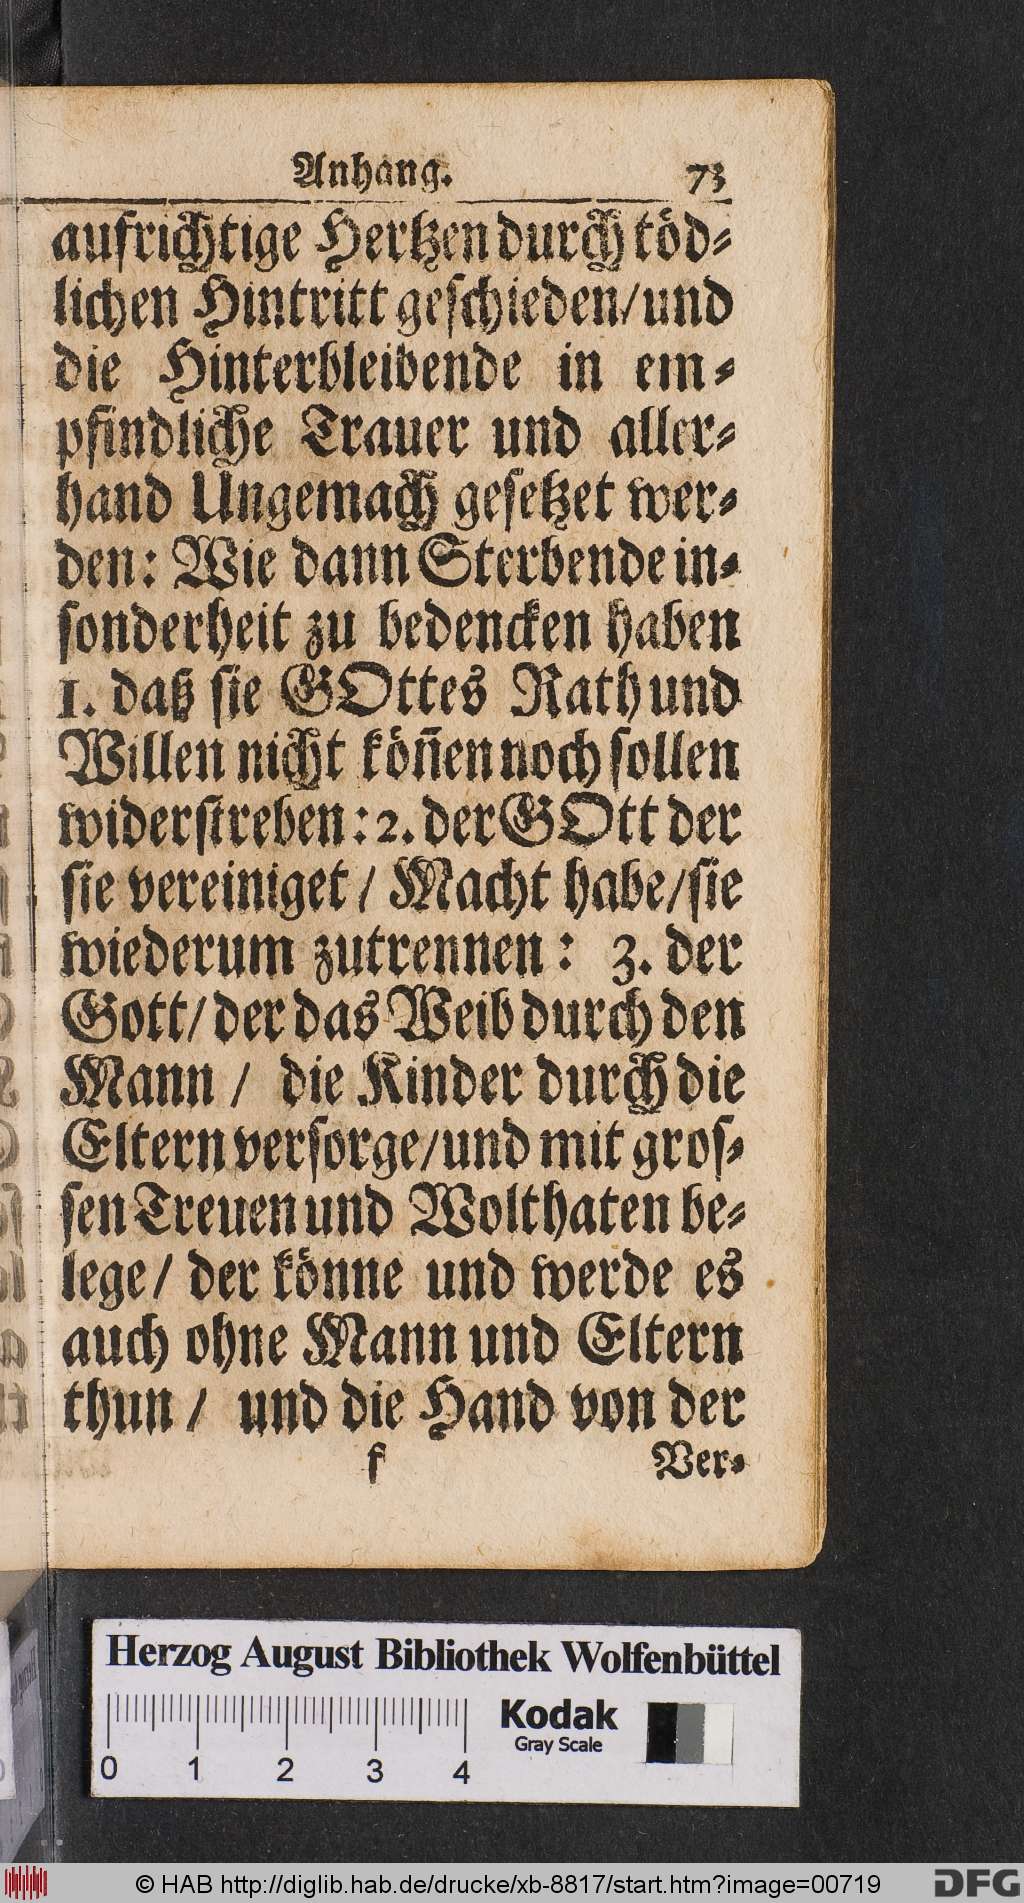 Anhang. 73
aufrichtige Hertzen durch töd-
lichen Hintritt geschieden/und
die Hinterbleibende in em-
pfindliche Trauer und aller-
hand Ungemach gesetzet wer-
den: Wie dann Sterbende in-
sonderheit zu bedencken haben
1. daß sie GOttes Rath und
Willen nicht köñen noch sollen
widerstreben: 2. der GOtt der
sie vereiniget / Macht habe/sie
wiederum zutrennen: 3. der
Gott/ der das Weib durch den
Mann / die Kinder durch die
Eltern versorge/und mit gros-
sen Treuen und Wolthaten be-
lege/ der könne und werde es
auch ohne Mann und Eltern
thun / und die Hand von der
f Ver-
Herzog August Bibliothek Wolfenbüttel
Kodak
Gray Scale
0 1 2 3 4
© HAB http://diglib.hab.de/drucke/xb-8817/start.htm?image=00719
DFG